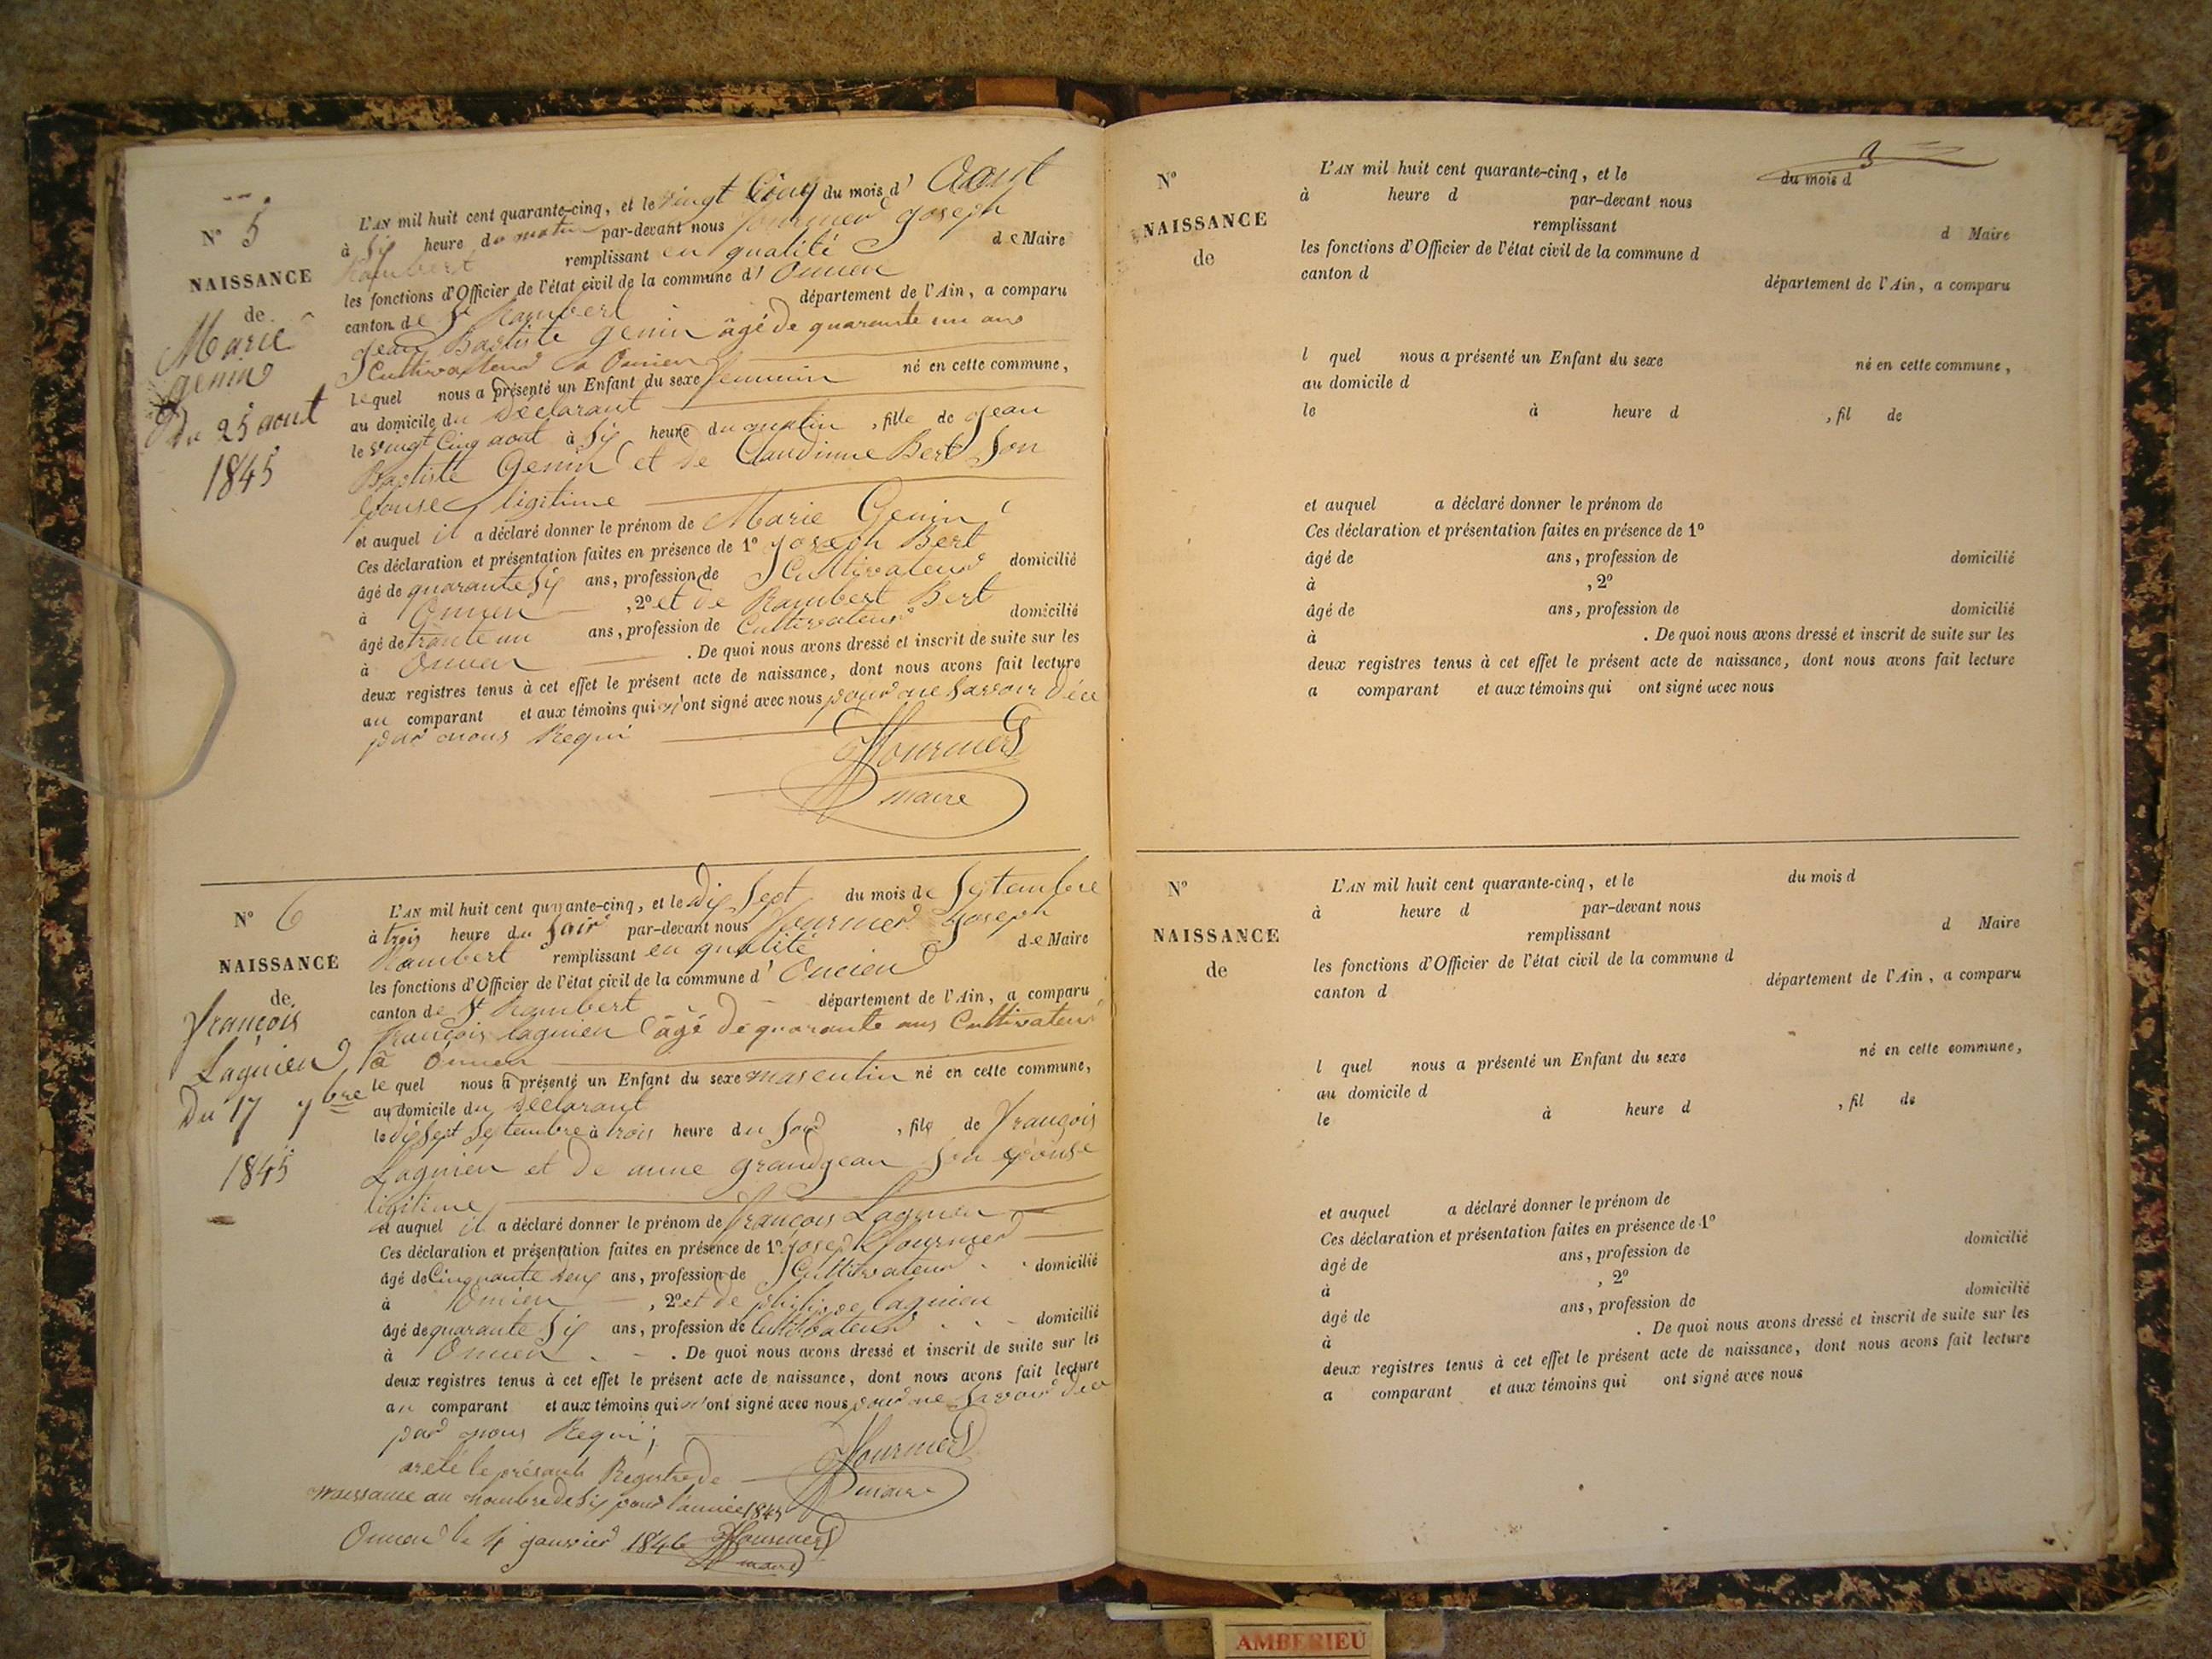 N° 5
NAISSANCE
de
Marie
genin
Du 25 aout
1845
L'AN mil huit cent quarante-cinq, et le vingt Cinq du mois d' Aout
à Six heure du matin par-devant nous fournier Joseph
Rambert remplissant en qualité de Maire
les fonctions d'Officier de l'état civil de la commune d' Oncieu
canton de St Rambert département de l'Ain, a comparu
Jean Baptiste genin âgé de quarante un ans
Cultivateur a Oncieu
lequel nous a présenté un Enfant du sexe feminin né en cette commune,
au domicile du Déclarant
le vingt Cinq aout à Six heure du matin, fille de Jean
Baptiste Genin et de Claudinne Bert Son
Epouse legitime
et auquel il a déclaré donner le prénom de Marie Genin
Ces déclaration et présentation faites en présence de 1° Joseph Bert
âgé de quarante Six ans, profession de Cultivateur domicilié
à Oncieu, 2° et de Rambert Bert
âgé de trante un ans, profession de Cultivateur domicilié
à Oncieu. De quoi nous avons dressé et inscrit de suite sur les
deux registres tenus à cet effet le présent acte de naissance, dont nous avons fait lecture
au comparant et aux témoins qui n'ont signé avec nous pour ne Savoir De ce
par nous Requi
Fournier
maire
N° 6
NAISSANCE
de
François
Lagnieu
Du 17 7bre
1845
L'AN mil huit cent quarante-cinq, et le Dix Sept du mois de Septembre
à trois heure du Soir par-devant nous fournier Joseph
Rambert remplissant en qualité de Maire
les fonctions d'Officier de l'état civil de la commune d' Oncieu
canton de St Rambert département de l'Ain, a comparu
François lagnieu âgé De quarante ans Cultivateur
à Oncieu
lequel nous a présenté un Enfant du sexe masculin né en cette commune,
au domicile du Déclarant
le dix Sept Septembre à trois heure du Soir, fils de François
Lagnieu et de anne grandgean Son epouse
legitime
et auquel il a déclaré donner le prénom de François Lagnieu
Ces déclaration et présentation faites en présence de 1° Joseph fournier
âgé de Cinquante Deux ans, profession de Cultivateur domicilié
à Oncieu, 2° et de philippe lagnieu
âgé de quarante Six ans, profession de Cultivateur domicilié
à Oncieu. De quoi nous avons dressé et inscrit de suite sur les
deux registres tenus à cet effet le présent acte de naissance, dont nous avons fait lecture
au comparant et aux témoins qui n'ont signé avec nous pour ne Savoir De ce
par nous Requi;
Fournier
maire
areté le présant Registre de
naissance au nombre de Six pour l'année 1845
Oncieu le 4 janvier 1846 Fournier
maire
3
N°
NAISSANCE
de
L'AN mil huit cent quarante-cinq, et le du mois d
à heure d par-devant nous
remplissant d Maire
les fonctions d'Officier de l'état civil de la commune d
canton d département de l'Ain, a comparu
l quel nous a présenté un Enfant du sexe né en cette commune,
au domicile d
le à heure d , fil de
et auquel a déclaré donner le prénom de
Ces déclaration et présentation faites en présence de 1°
âgé de ans, profession de domicilié
à , 2°
âgé de ans, profession de domicilié
à . De quoi nous avons dressé et inscrit de suite sur les
deux registres tenus à cet effet le présent acte de naissance, dont nous avons fait lecture
a comparant et aux témoins qui ont signé avec nous
N°
NAISSANCE
de
L'AN mil huit cent quarante-cinq, et le du mois d
à heure d par-devant nous
remplissant d Maire
les fonctions d'Officier de l'état civil de la commune d
canton d département de l'Ain, a comparu
l quel nous a présenté un Enfant du sexe né en cette commune,
au domicile d
le à heure d , fil de
et auquel a déclaré donner le prénom de
Ces déclaration et présentation faites en présence de 1°
âgé de ans, profession de domicilié
à , 2°
âgé de ans, profession de domicilié
à . De quoi nous avons dressé et inscrit de suite sur les
deux registres tenus à cet effet le présent acte de naissance, dont nous avons fait lecture
a comparant et aux témoins qui ont signé avec nous
AMBERIEU